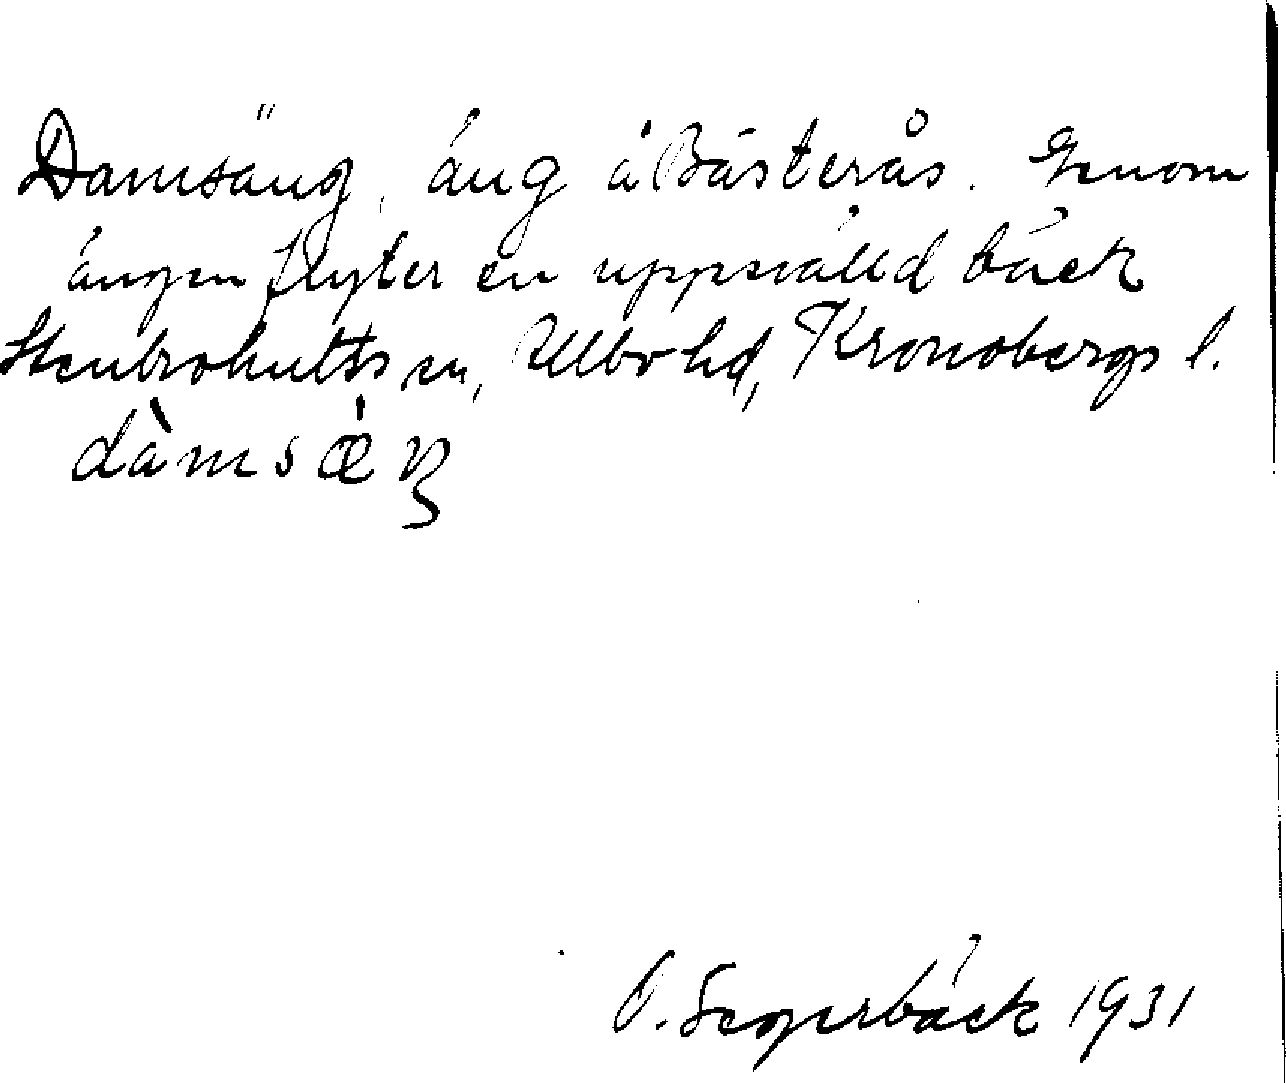 Damsäng, äng å Bästerås. Genom
ängen flyter en uppsvälld bäck
Stenbrohults sn, Allbo hd, Kronobergs l.
dàmsæ̀ŋ
O. Segerbäck 1931